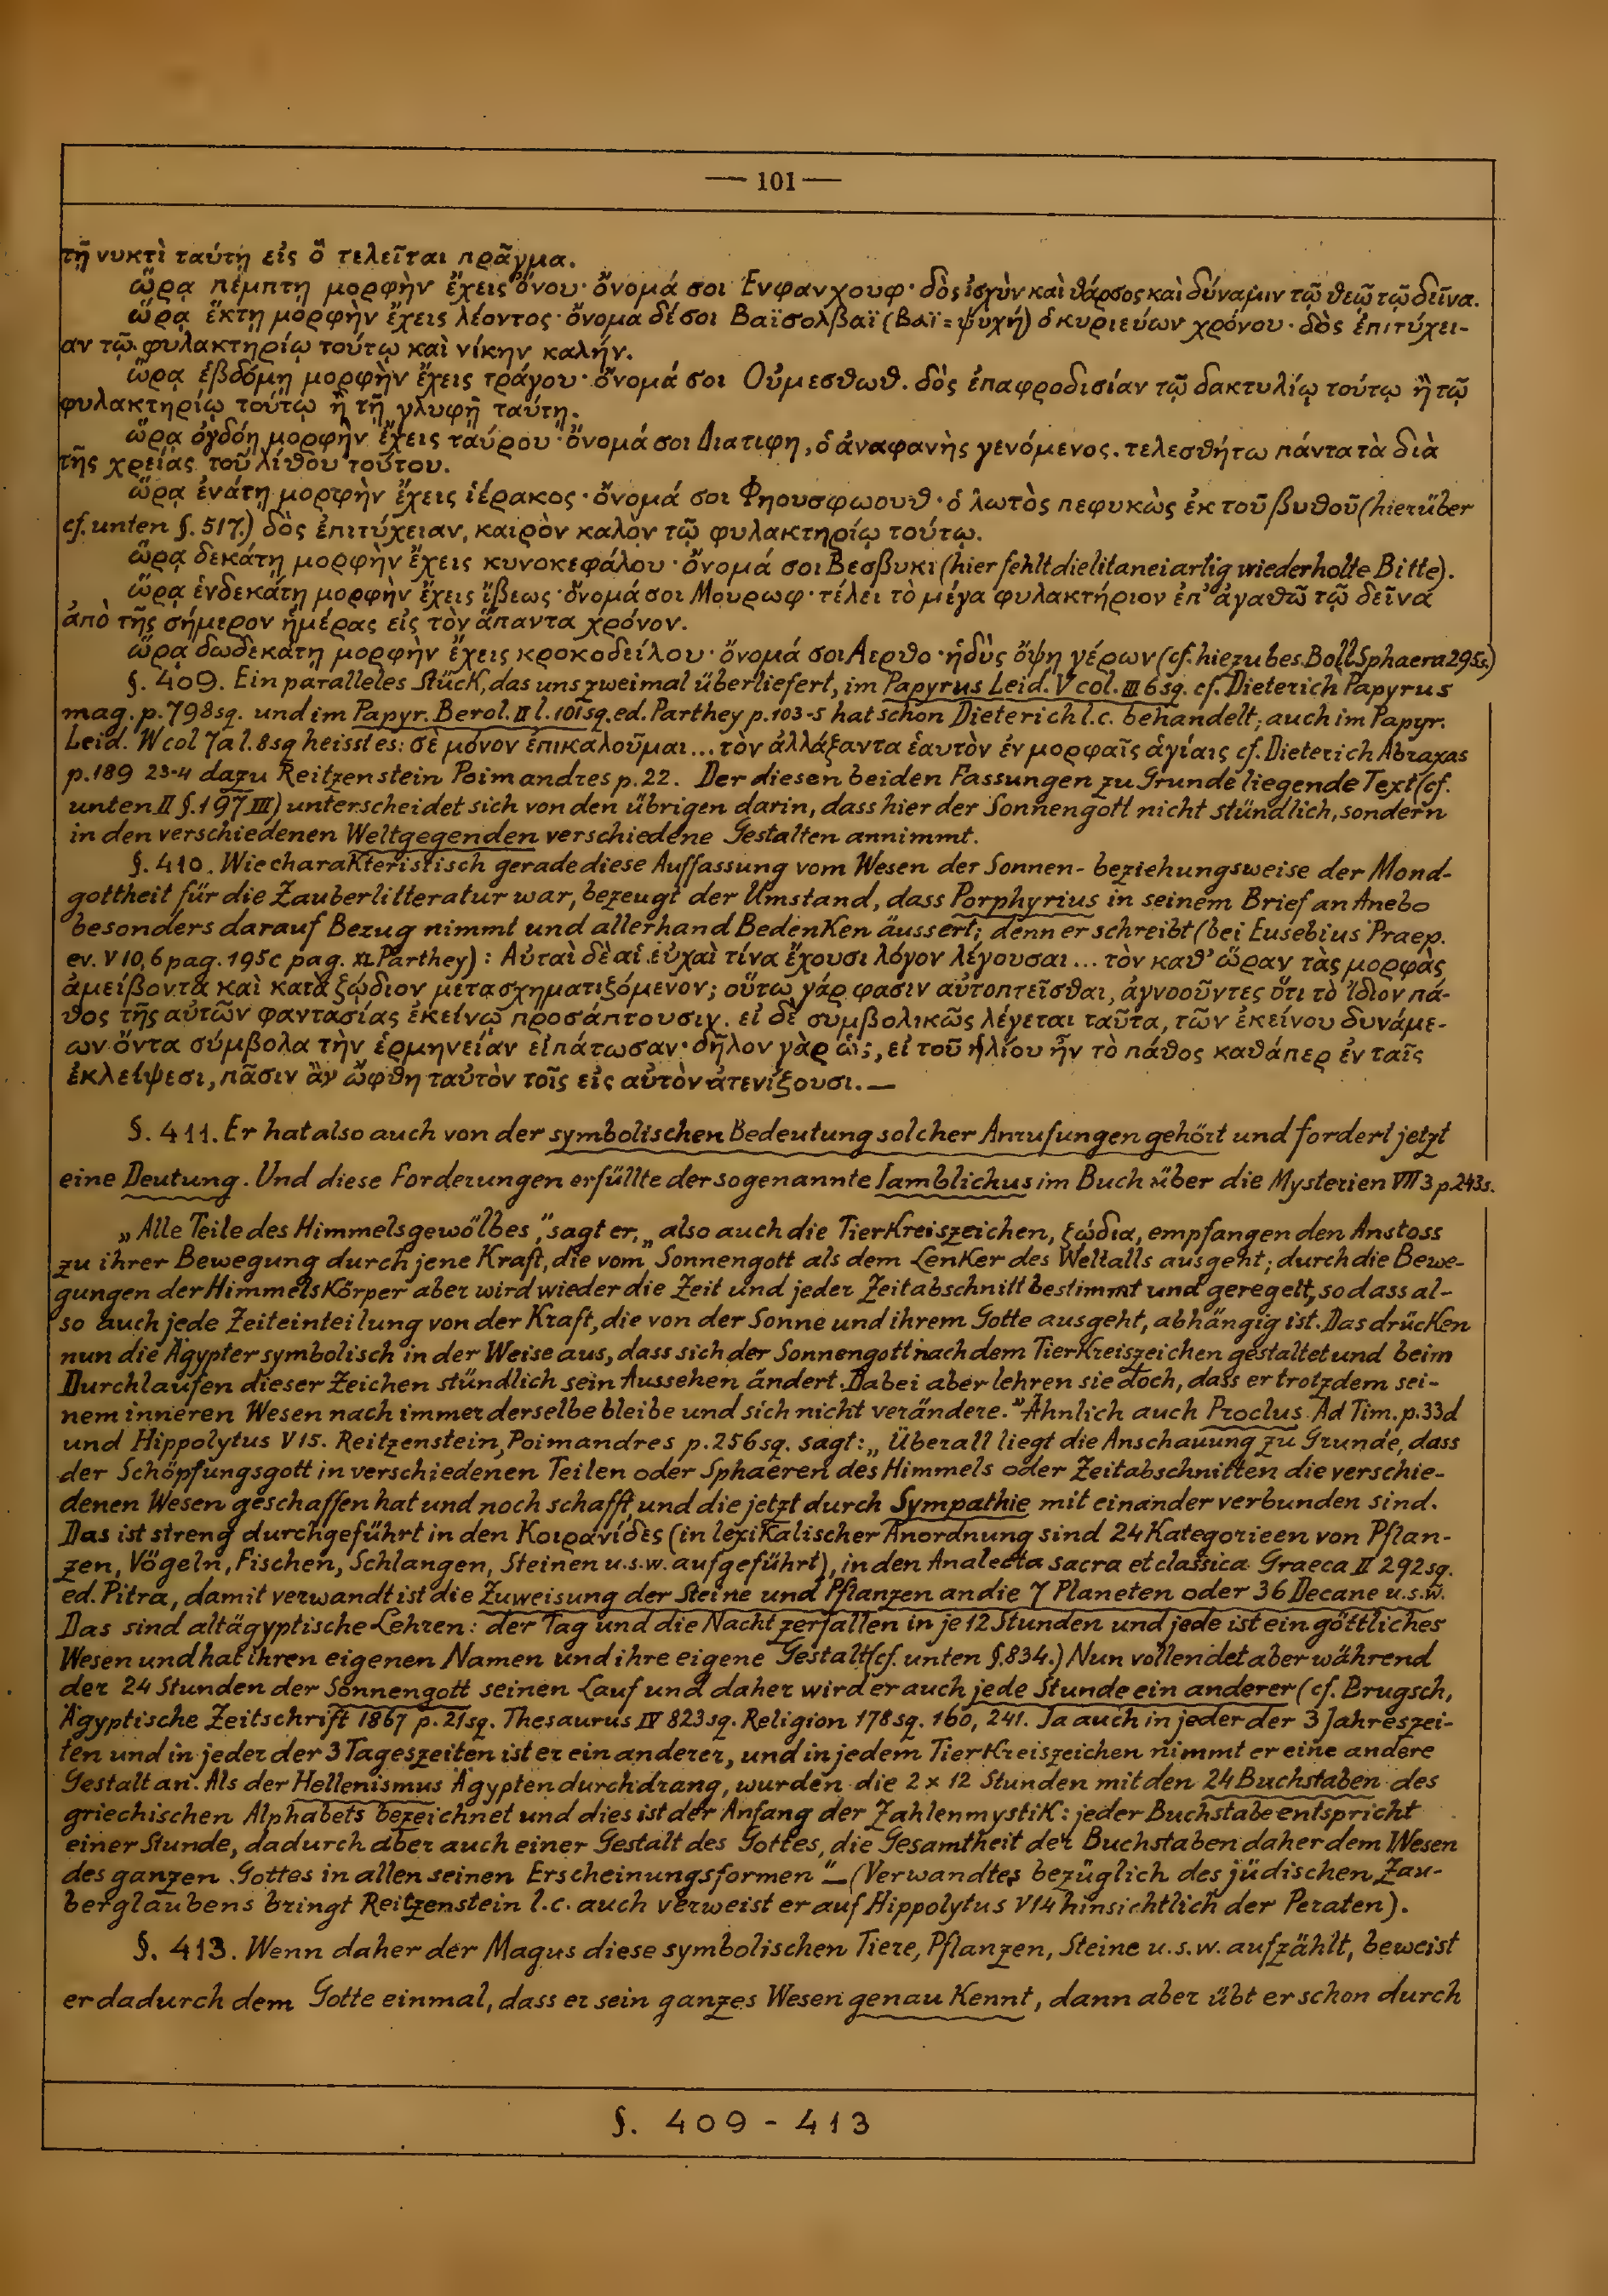 — 101 —
τῇ νυκτὶ ταύτῃ εἰς ὃ τελεῖται πρᾶγμα.
ὥρᾳ πέμπτῃ μορφὴν ἔχεις ὄνου· ὄνομά σοι Ἐνφανχουφ· δὸς ἰσχὺν καὶ θάρσος καὶ δύναμιν τῷ θεῷ τῷ δεῖνα.
ὥρᾳ ἕκτῃ μορφὴν ἔχεις λέοντος· ὄνομα δέ σοι Βαϊσολβαϊ (Βαϊ = ψυχή) ὁ κυριεύων χρόνου· δὸς ἐπιτύχει-
αν τῷ φυλακτηρίῳ τούτῳ καὶ νίκην καλήν.
ὥρᾳ ἑβδόμῃ μορφὴν ἔχεις τράγου· ὄνομά σοι Οὐμεσθωθ. δὸς ἐπαφροδισίαν τῷ δακτυλίῳ τούτῳ ἢ τῷ
φυλακτηρίῳ τούτῳ ἢ τῇ γλυφῇ ταύτῃ.
ὥρᾳ ὀγδόῃ μορφὴν ἔχεις ταύρου· ὄνομά σοι Διατιφη, ὁ ἀναφανὴς γενόμενος. τελεσθήτω πάντα τὰ διὰ
τῆς χρείας τοῦ λίθου τούτου.
ὥρᾳ ἐνάτῃ μορφὴν ἔχεις ἱέρακος· ὄνομά σοι Φηουσφωουθ· ὁ λωτὸς πεφυκὼς ἐκ τοῦ βυθοῦ (hierüber
cf. unten §. 517.) δὸς ἐπιτύχειαν, καιρὸν καλὸν τῷ φυλακτηρίῳ τούτῳ.
ὥρᾳ δεκάτῃ μορφὴν ἔχεις κυνοκεφάλου· ὄνομά σοι Βεσβυκι (hier fehlt die litaneiartig wiederholte Bitte).
ὥρᾳ ἑνδεκάτῃ μορφὴν ἔχεις ἴβεως· ὄνομά σοι Μουρωφ· τέλει τὸ μέγα φυλακτήριον ἐπ' ἀγαθῶ τῷ δεῖνα
ἀπὸ τῆς σήμερον ἡμέρας εἰς τὸν ἅπαντα χρόνον.
ὥρᾳ δωδεκάτῃ μορφὴν ἔχεις κροκοδείλου· ὄνομά σοι Αερθο· ἡδὺς ὄψη γέρων (cf. hiezu bes. Boll Sphaera 295s.)
§. 409. Ein paralleles Stück, das uns zweimal überliefert, im Papyrus Leid. V col. III 6 sq. cf. Dieterich Papyrus
mag. p. 798 sq. und im Papyr. Berol. II l. 101 sq. ed. Parthey p. 103-5 hat schon Dieterich l.c. behandelt; auch im Papyr.
Leid. W col 7a l. 8 sq heisst es: σὲ μόνον ἐπικαλοῦμαι... τὸν ἀλλάξαντα ἑαυτὸν ἐν μορφαῖς ἁγίαις cf. Dieterich Abraxas
p. 189 23-4 dazu Reitzenstein Poimandres p. 22. Der diesen beiden Fassungen zu Grunde liegende Text (cf.
unten II §. 197 III) unterscheidet sich von den übrigen darin, dass hier der Sonnengott nicht stündlich, sondern
in den verschiedenen Weltgegenden verschiedene Gestalten annimmt.
§. 410. Wie charakteristisch gerade diese Auffassung vom Wesen der Sonnen- beziehungsweise der Mond-
gottheit für die Zauberlitteratur war, bezeugt der Umstand, dass Porphyrius in seinem Brief an Anebo
besonders darauf Bezug nimmt und allerhand Bedenken äussert; denn er schreibt (bei Eusebius Praep.
ev. V 10, 6 pag. 195c pag. XL Parthey): Αὐταὶ δὲ αἱ εὐχαὶ τίνα ἔχουσι λόγον λέγουσαι... τὸν καθ' ὥραν τὰς μορφὰς
ἀμείβοντα καὶ κατὰ ζῴδιον μετασχηματιζόμενον; οὕτω γάρ φασιν αὐτοπτεῖσθαι, ἀγνοοῦντες ὅτι τὸ ἴδιον πά-
θος τῆς αὐτῶν φαντασίας ἐκείνῳ προσάπτουσιν. εἰ δὲ συμβολικῶς λέγεται ταῦτα, τῶν ἐκείνου δυνάμε-
ων ὄντα σύμβολα τὴν ἑρμηνείαν εἰπάτωσαν· δῆλον γὰρ ὡς, εἰ τοῦ ἡλίου ἦν τὸ πάθος καθάπερ ἐν ταῖς
ἐκλείψεσι, πᾶσιν ἂν ὤφθη ταὐτὸν τοῖς εἰς αὐτὸν ἀτενίζουσι.—
§. 411. Er hat also auch von der symbolischen Bedeutung solcher Anrufungen gehört und fordert jetzt
eine Deutung. Und diese Forderungen erfüllte der sogenannte Iamblichus im Buch über die Mysterien VII 3 p. 243s.
„Alle Teile des Himmelsgewölbes", sagt er, „also auch die Tierkreiszeichen, ζῴδια, empfangen den Anstoss
zu ihrer Bewegung durch jene Kraft, die vom Sonnengott als dem Lenker des Weltalls ausgeht; durch die Bewe-
gungen der Himmelskörper aber wird wieder die Zeit und jeder Zeitabschnitt bestimmt und geregelt, so dass al-
so auch jede Zeiteinteilung von der Kraft, die von der Sonne und ihrem Gotte ausgeht, abhängig ist. Das drücken
nun die Ägypter symbolisch in der Weise aus, dass sich der Sonnengott nach dem Tierkreiszeichen gestaltet und beim
Durchlaufen dieser Zeichen stündlich sein Aussehen ändert. Dabei aber lehren sie doch, dass er trotzdem sei-
nem inneren Wesen nach immer derselbe bleibe und sich nicht verändere." Ähnlich auch Proclus Ad Tim. p. 33d
und Hippolytus V 15. Reitzenstein, Poimandres p. 256 sq. sagt: „Überall liegt die Anschauung zu Grunde, dass
der Schöpfungsgott in verschiedenen Teilen oder Sphaeren des Himmels oder Zeitabschnitten die verschie-
denen Wesen geschaffen hat und noch schafft, und die jetzt durch Sympathie mit einander verbunden sind.
Das ist streng durchgeführt in den Κοιρανίδες (in lexikalischer Anordnung sind 24 Kategorieen von Pflan-
zen, Vögeln, Fischen, Schlangen, Steinen u.s.w. aufgeführt), in den Analecta sacra et classica Graeca II 292 sq.
ed. Pitra, damit verwandt ist die Zuweisung der Steine und Pflanzen an die 7 Planeten oder 36 Decane u.s.w.
Das sind altägyptische Lehren: der Tag und die Nacht zerfallen in je 12 Stunden und jede ist ein göttliches
Wesen und hat ihren eigenen Namen und ihre eigene Gestalt (cf. unten §. 834.) Nun vollendet aber während
der 24 Stunden der Sonnengott seinen Lauf und daher wird er auch jede Stunde ein anderer (cf. Brugsch,
Ägyptische Zeitschrift 1867 p. 21 sq. Thesaurus IV 823 sq. Religion 178 sq. 160, 241. Ja auch in jeder der 3 Jahreszei-
ten und in jeder der 3 Tageszeiten ist er ein anderer, und in jedem Tierkreiszeichen nimmt er eine andere
Gestalt an. Als der Hellenismus Ägypten durchdrang, wurden die 2 x 12 Stunden mit den 24 Buchstaben des
griechischen Alphabets bezeichnet und dies ist der Anfang der Zahlenmystik: jeder Buchstabe entspricht
einer Stunde, dadurch aber auch einer Gestalt des Gottes, die Gesamtheit der Buchstaben daher dem Wesen
des ganzen Gottes in allen seinen Erscheinungsformen"— (Verwandtes bezüglich des jüdischen Zau-
berglaubens bringt Reitzenstein l.c. auch verweist er auf Hippolytus V 14 hinsichtlich der Peraten).
§. 413. Wenn daher der Magus diese symbolischen Tiere, Pflanzen, Steine u.s.w. aufzählt, beweist
er dadurch dem Gotte einmal, dass er sein ganzes Wesen genau kennt, dann aber übt er schon durch
§. 409 - 413